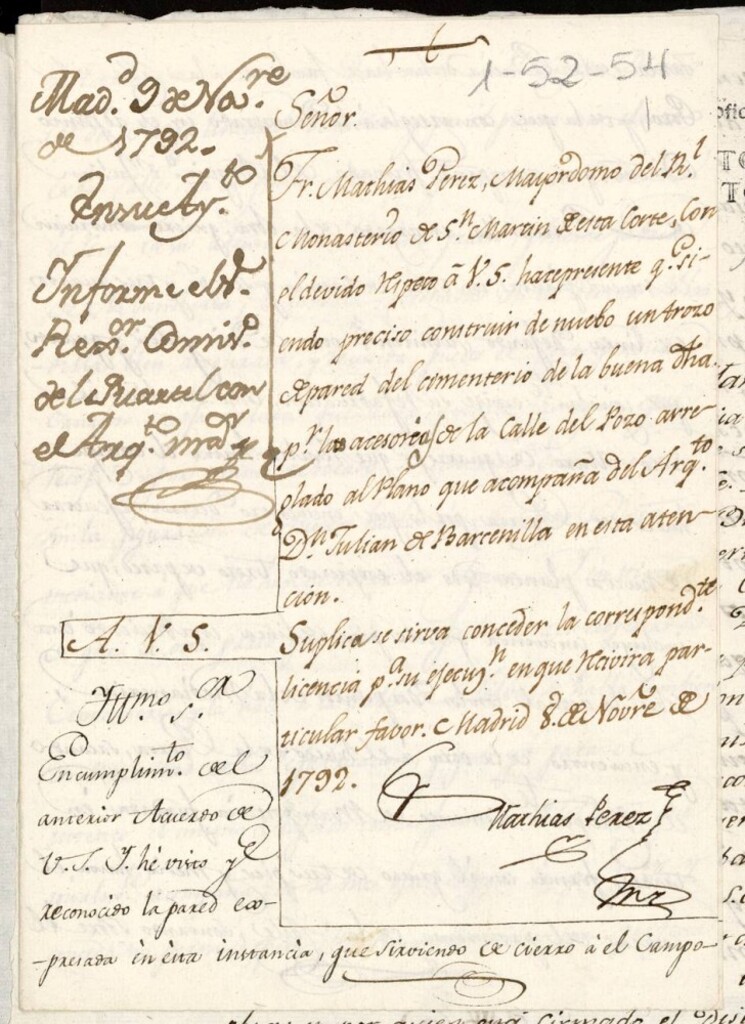 1-52-54
Mad.d 9 de Nov.re
de 1792.
En su Ay.to
Informe el S.r
Rex.or Comis.o
del Quartel con
el Arq.to m.or
Señor.
Fr. Mathias Perez, Mayordomo del R.l
Monasterio de S.n Martin de esta Corte, con
el devido Respeto â V.S. hace presente q.e si-
endo preciso construir de nuebo un trozo
de pared del cimenterio de la buena dha
p.r las acesorias de la Calle del Pozo arre-
glado al Plano que acompaña del Arq.to
D.n Julian de Barcenilla en esta aten-
cion.
A. V. S.
Suplica se sirva conceder la correspond.te
licencia p.a su ejecuz.n en que Recivira par-
ticular favor. Madrid 8 de Novre de
1792.
Mathias Perez
Yllmo. S.or
En cumplim.to del
anterior Acuerdo de
V.S.Y. hé visto y
reconocido la pared ex-
-presada en esta instancia, que sirviendo de cierro á el Campo-